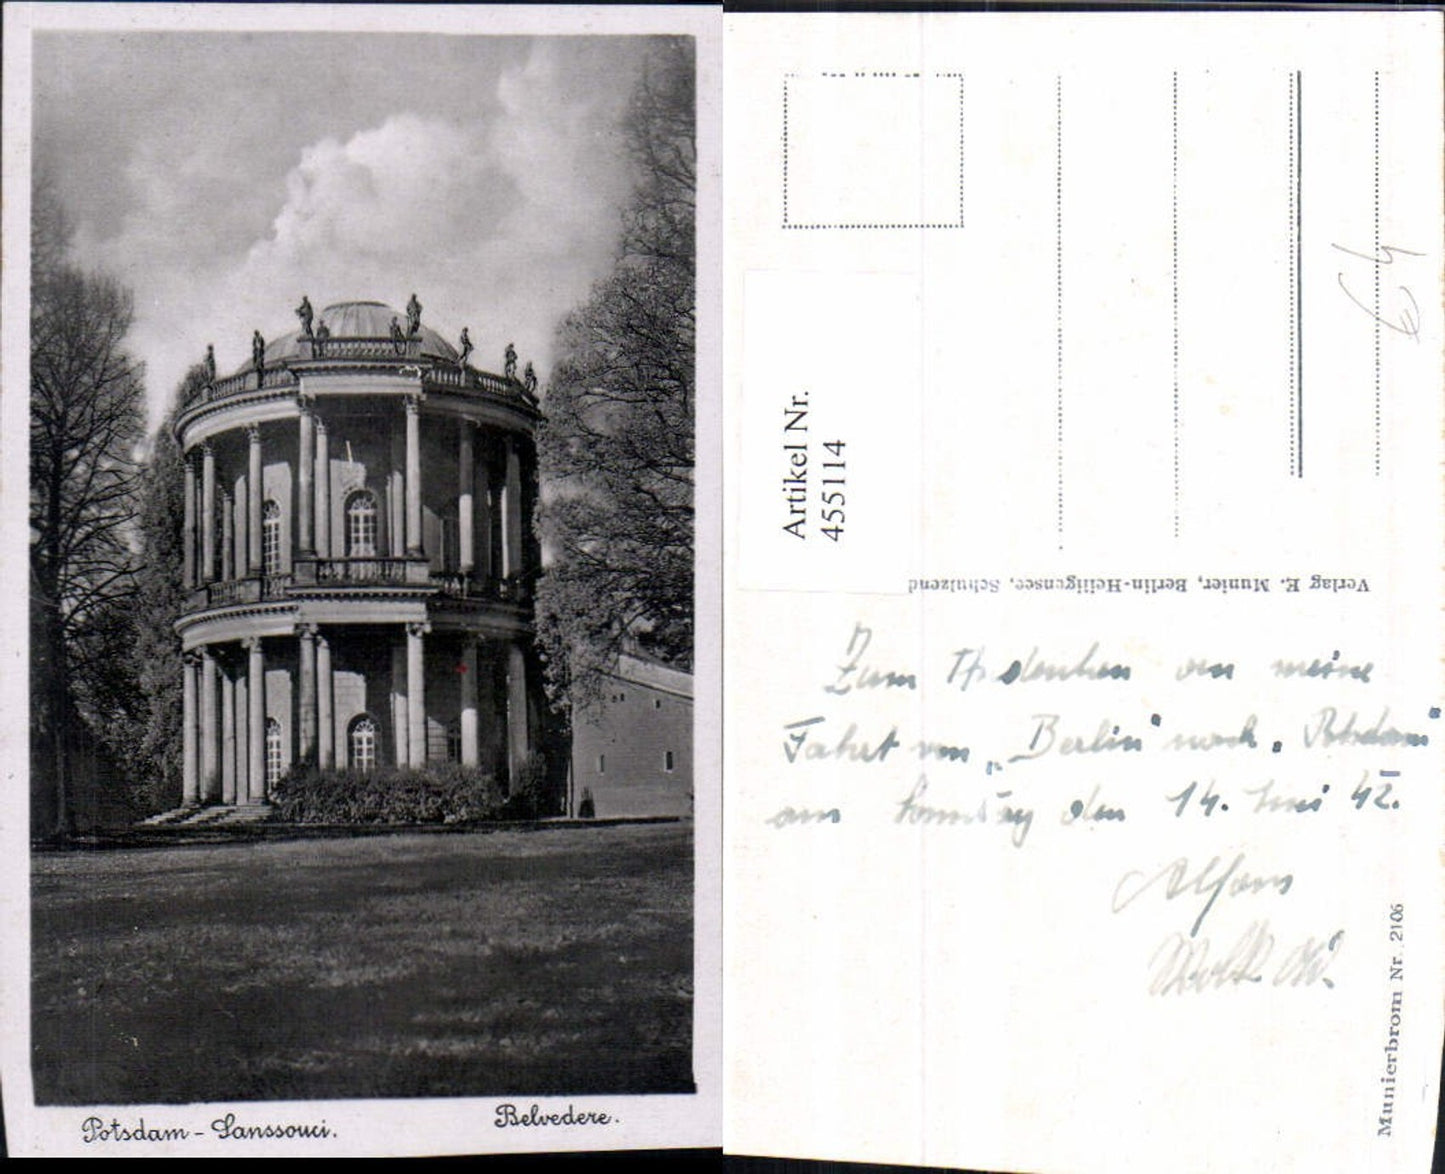 Potsdam - Sanssouci.
Belvedere.
€ 4
Artikel Nr.
455114
Verlag E. Munier, Berlin-Heiligensee, Schulzend
Zum Andenken an meine
Fahrt von „Berlin" nach „Potsdam"
am den 14. 42.
Alfons
Munierbrom Nr. 2106